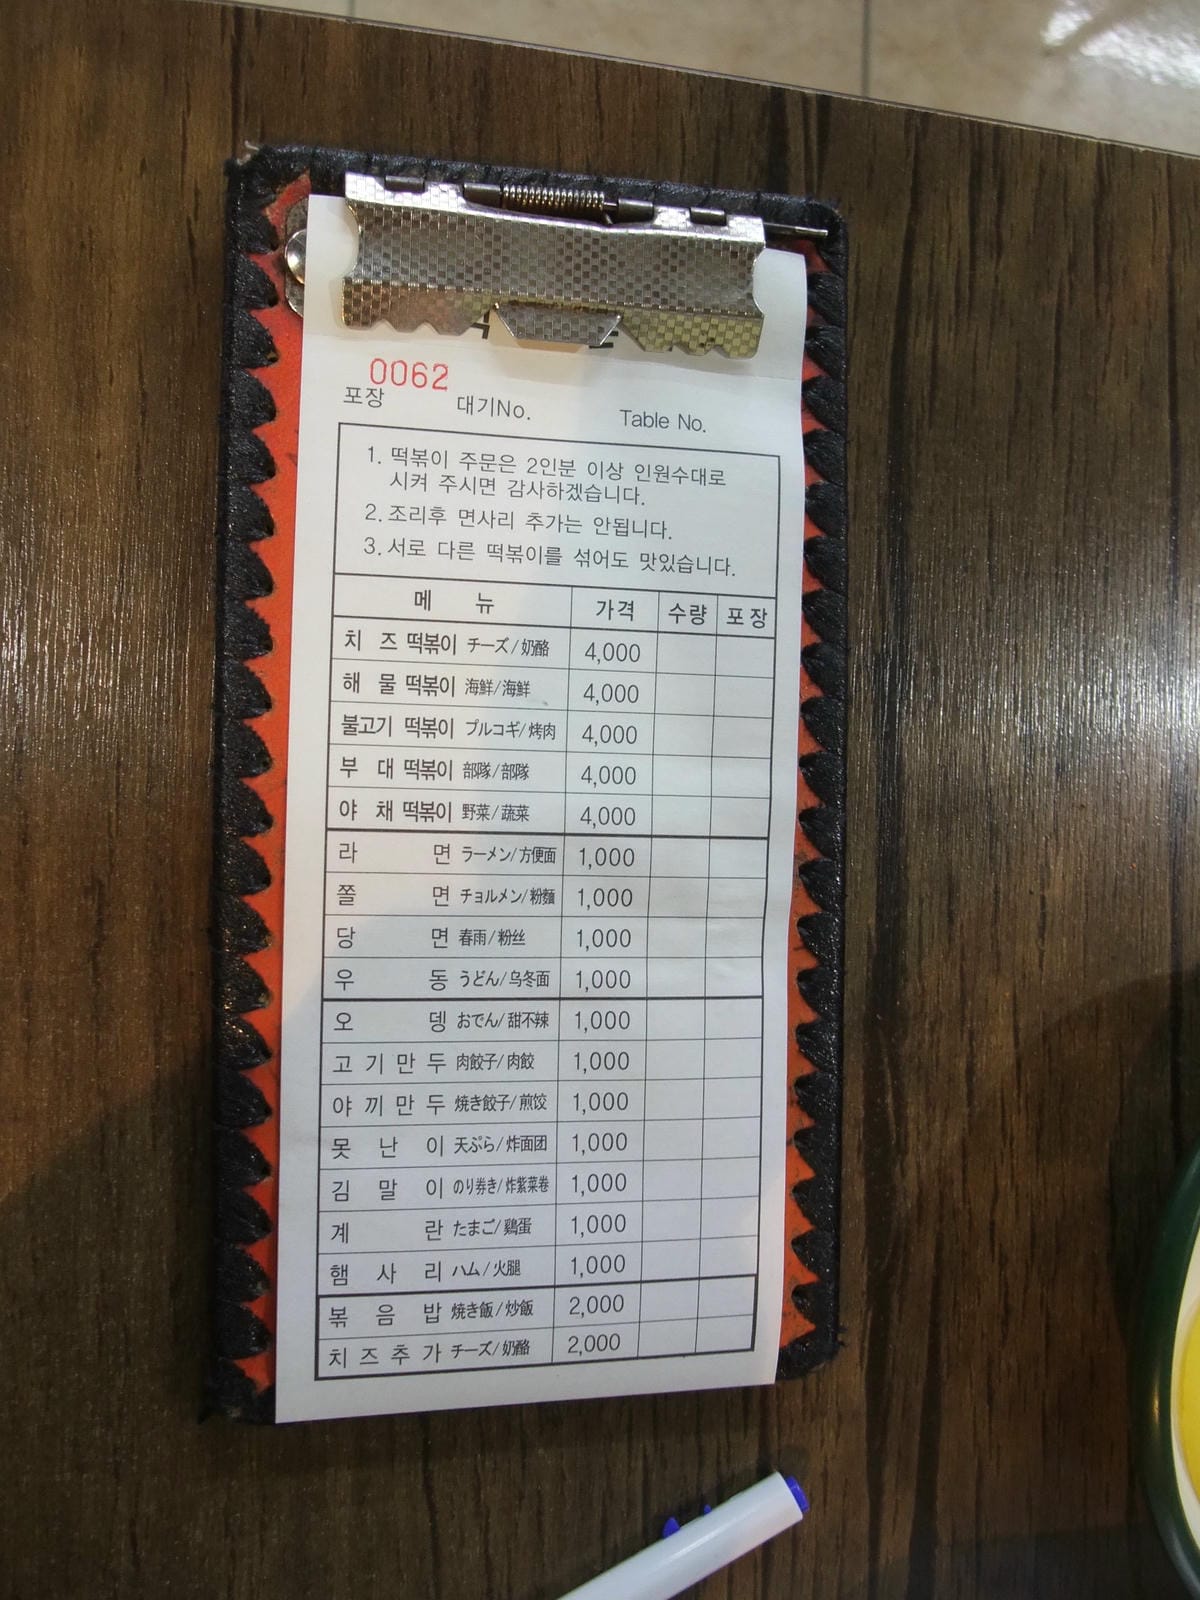 0062
포장 대기No. Table No.
1. 떡볶이 주문은 2인분 이상 인원수대로
시켜 주시면 감사하겠습니다.
2. 조리후 면사리 추가는 안됩니다.
3. 서로 다른 떡볶이를 섞어도 맛있습니다.
메 뉴 가격 수량 포장
치 즈 떡볶이 チーズ/奶酪 4,000
해 물 떡볶이 海鮮/海鮮 4,000
불고기 떡볶이 プルコギ/烤肉 4,000
부 대 떡볶이 部隊/部隊 4,000
야 채 떡볶이 野菜/蔬菜 4,000
라 면 ラーメン/方便面 1,000
쫄 면 チョルメン/粉麵 1,000
당 면 春雨/粉丝 1,000
우 동 うどん/乌冬面 1,000
오 뎅 おでん/甜不辣 1,000
고 기 만 두 肉餃子/肉餃 1,000
야 끼 만 두 焼き餃子/煎饺 1,000
못 난 이 天ぷら/炸面团 1,000
김 말 이 のり券き/炸紫菜卷 1,000
계 란 たまご/鷄蛋 1,000
햄 사 리 ハム/火腿 1,000
볶 음 밥 焼き飯/炒飯 2,000
치 즈 추 가 チーズ/奶酪 2,000